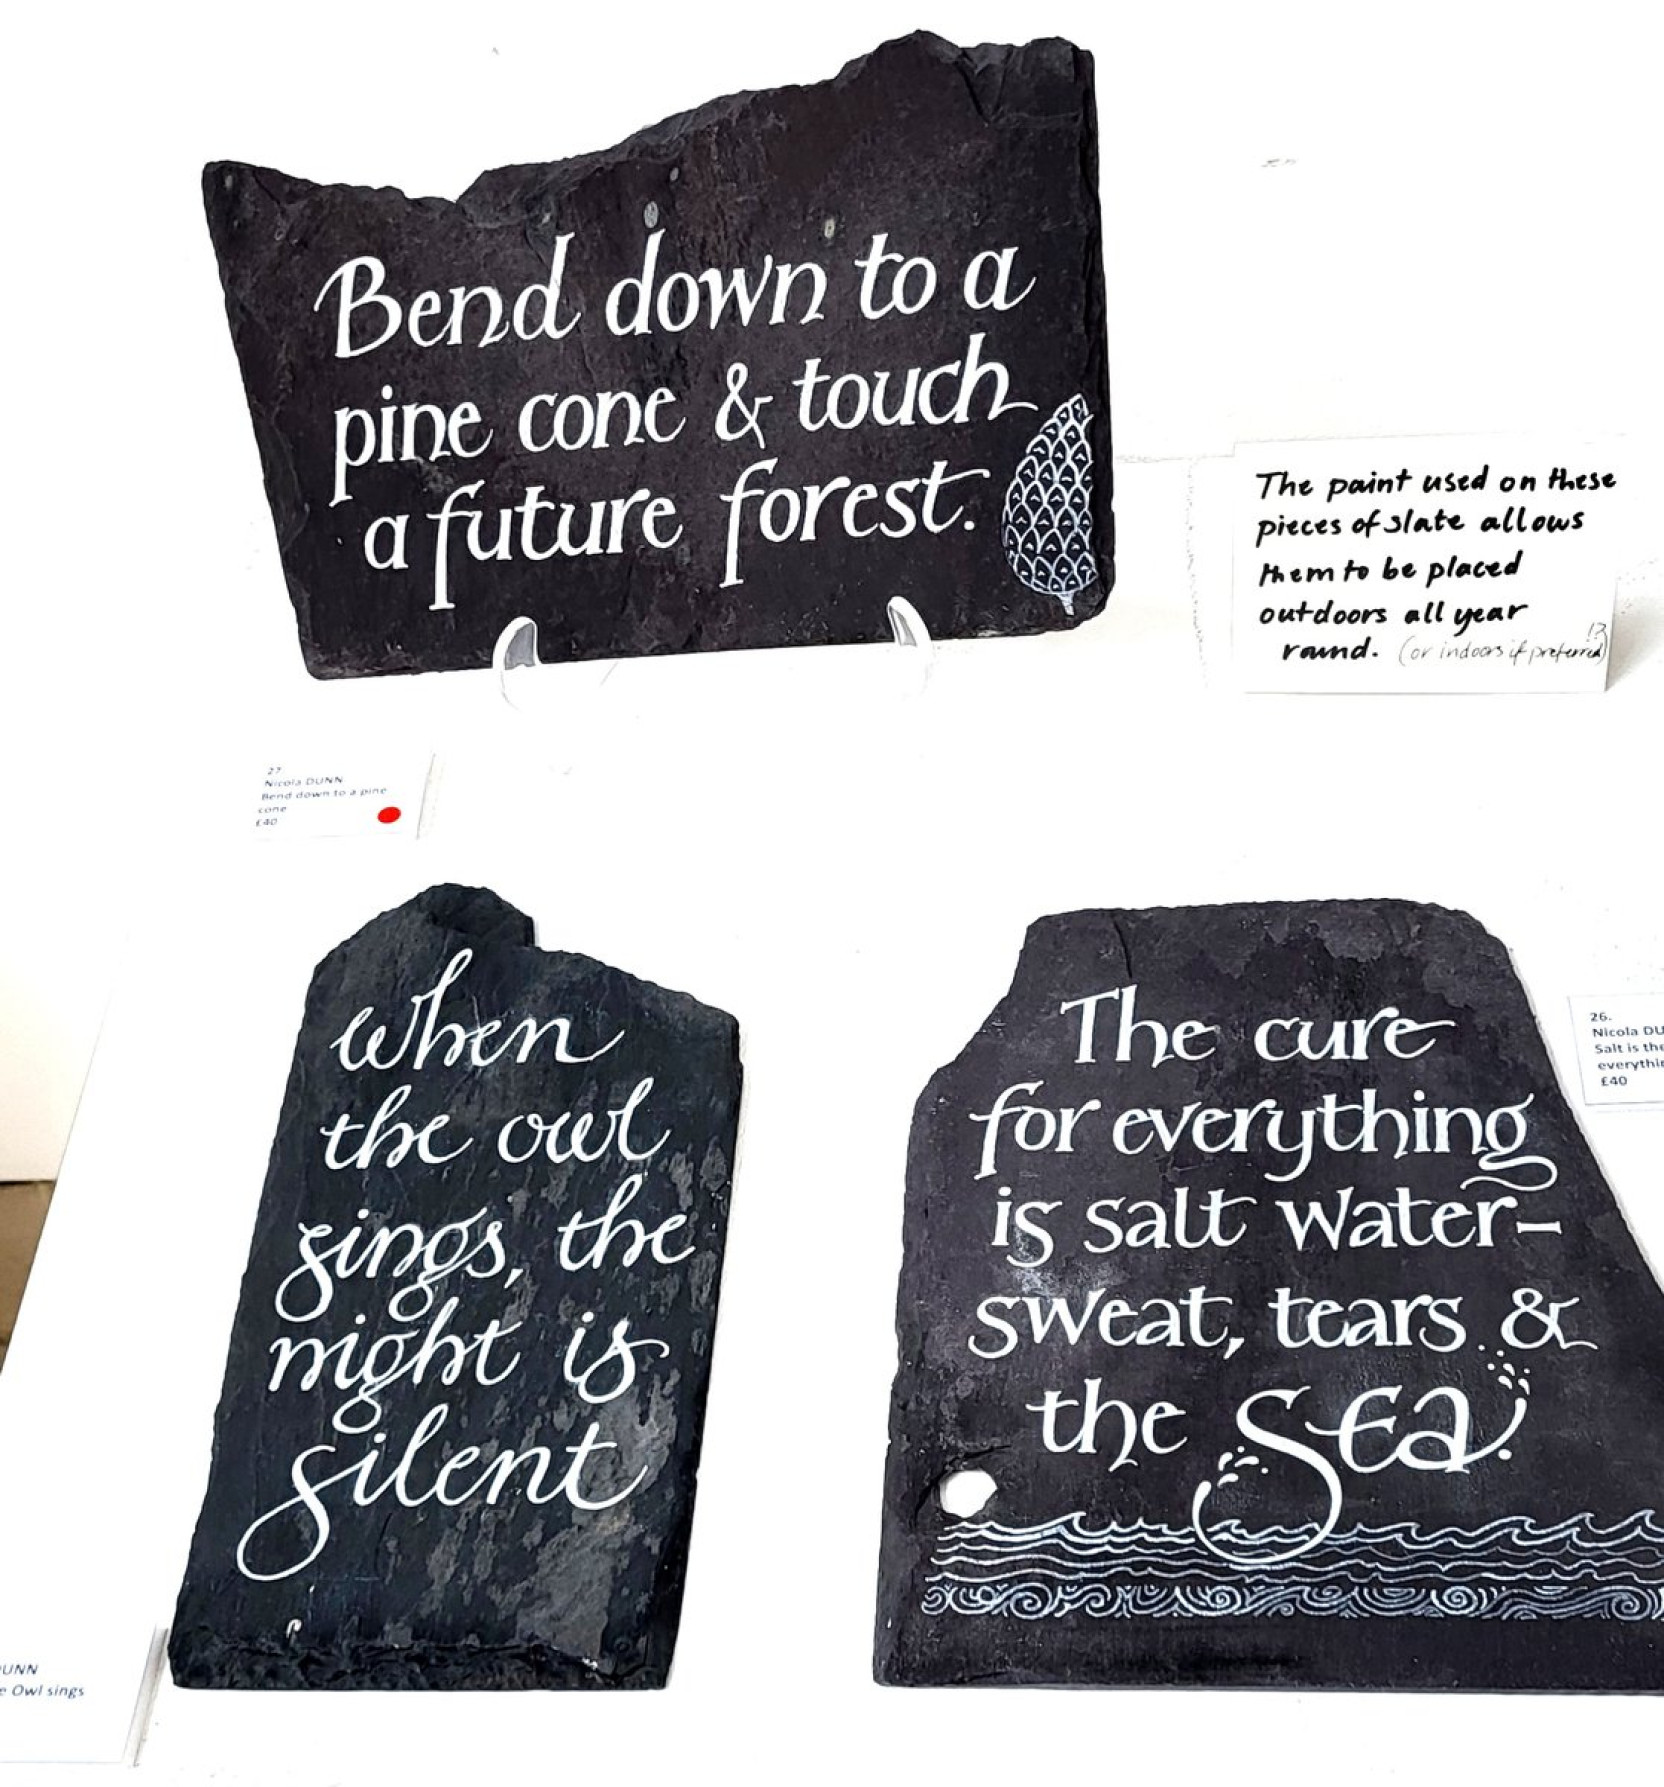 Bend down to a
pine cone & touch
a future forest.
The paint used on these
pieces of slate allows
them to be placed
outdoors all year
round. (or indoors if preferred!?)
27
Nicola DUNN
Bend down to a pine
cone
£40
When
the owl
sings, the
night is
silent
The cure
for everything
is salt water–
sweat, tears &
the Sea.
26.
Nicola DU
Salt is the
everythi
£40
UNN
e Owl sings